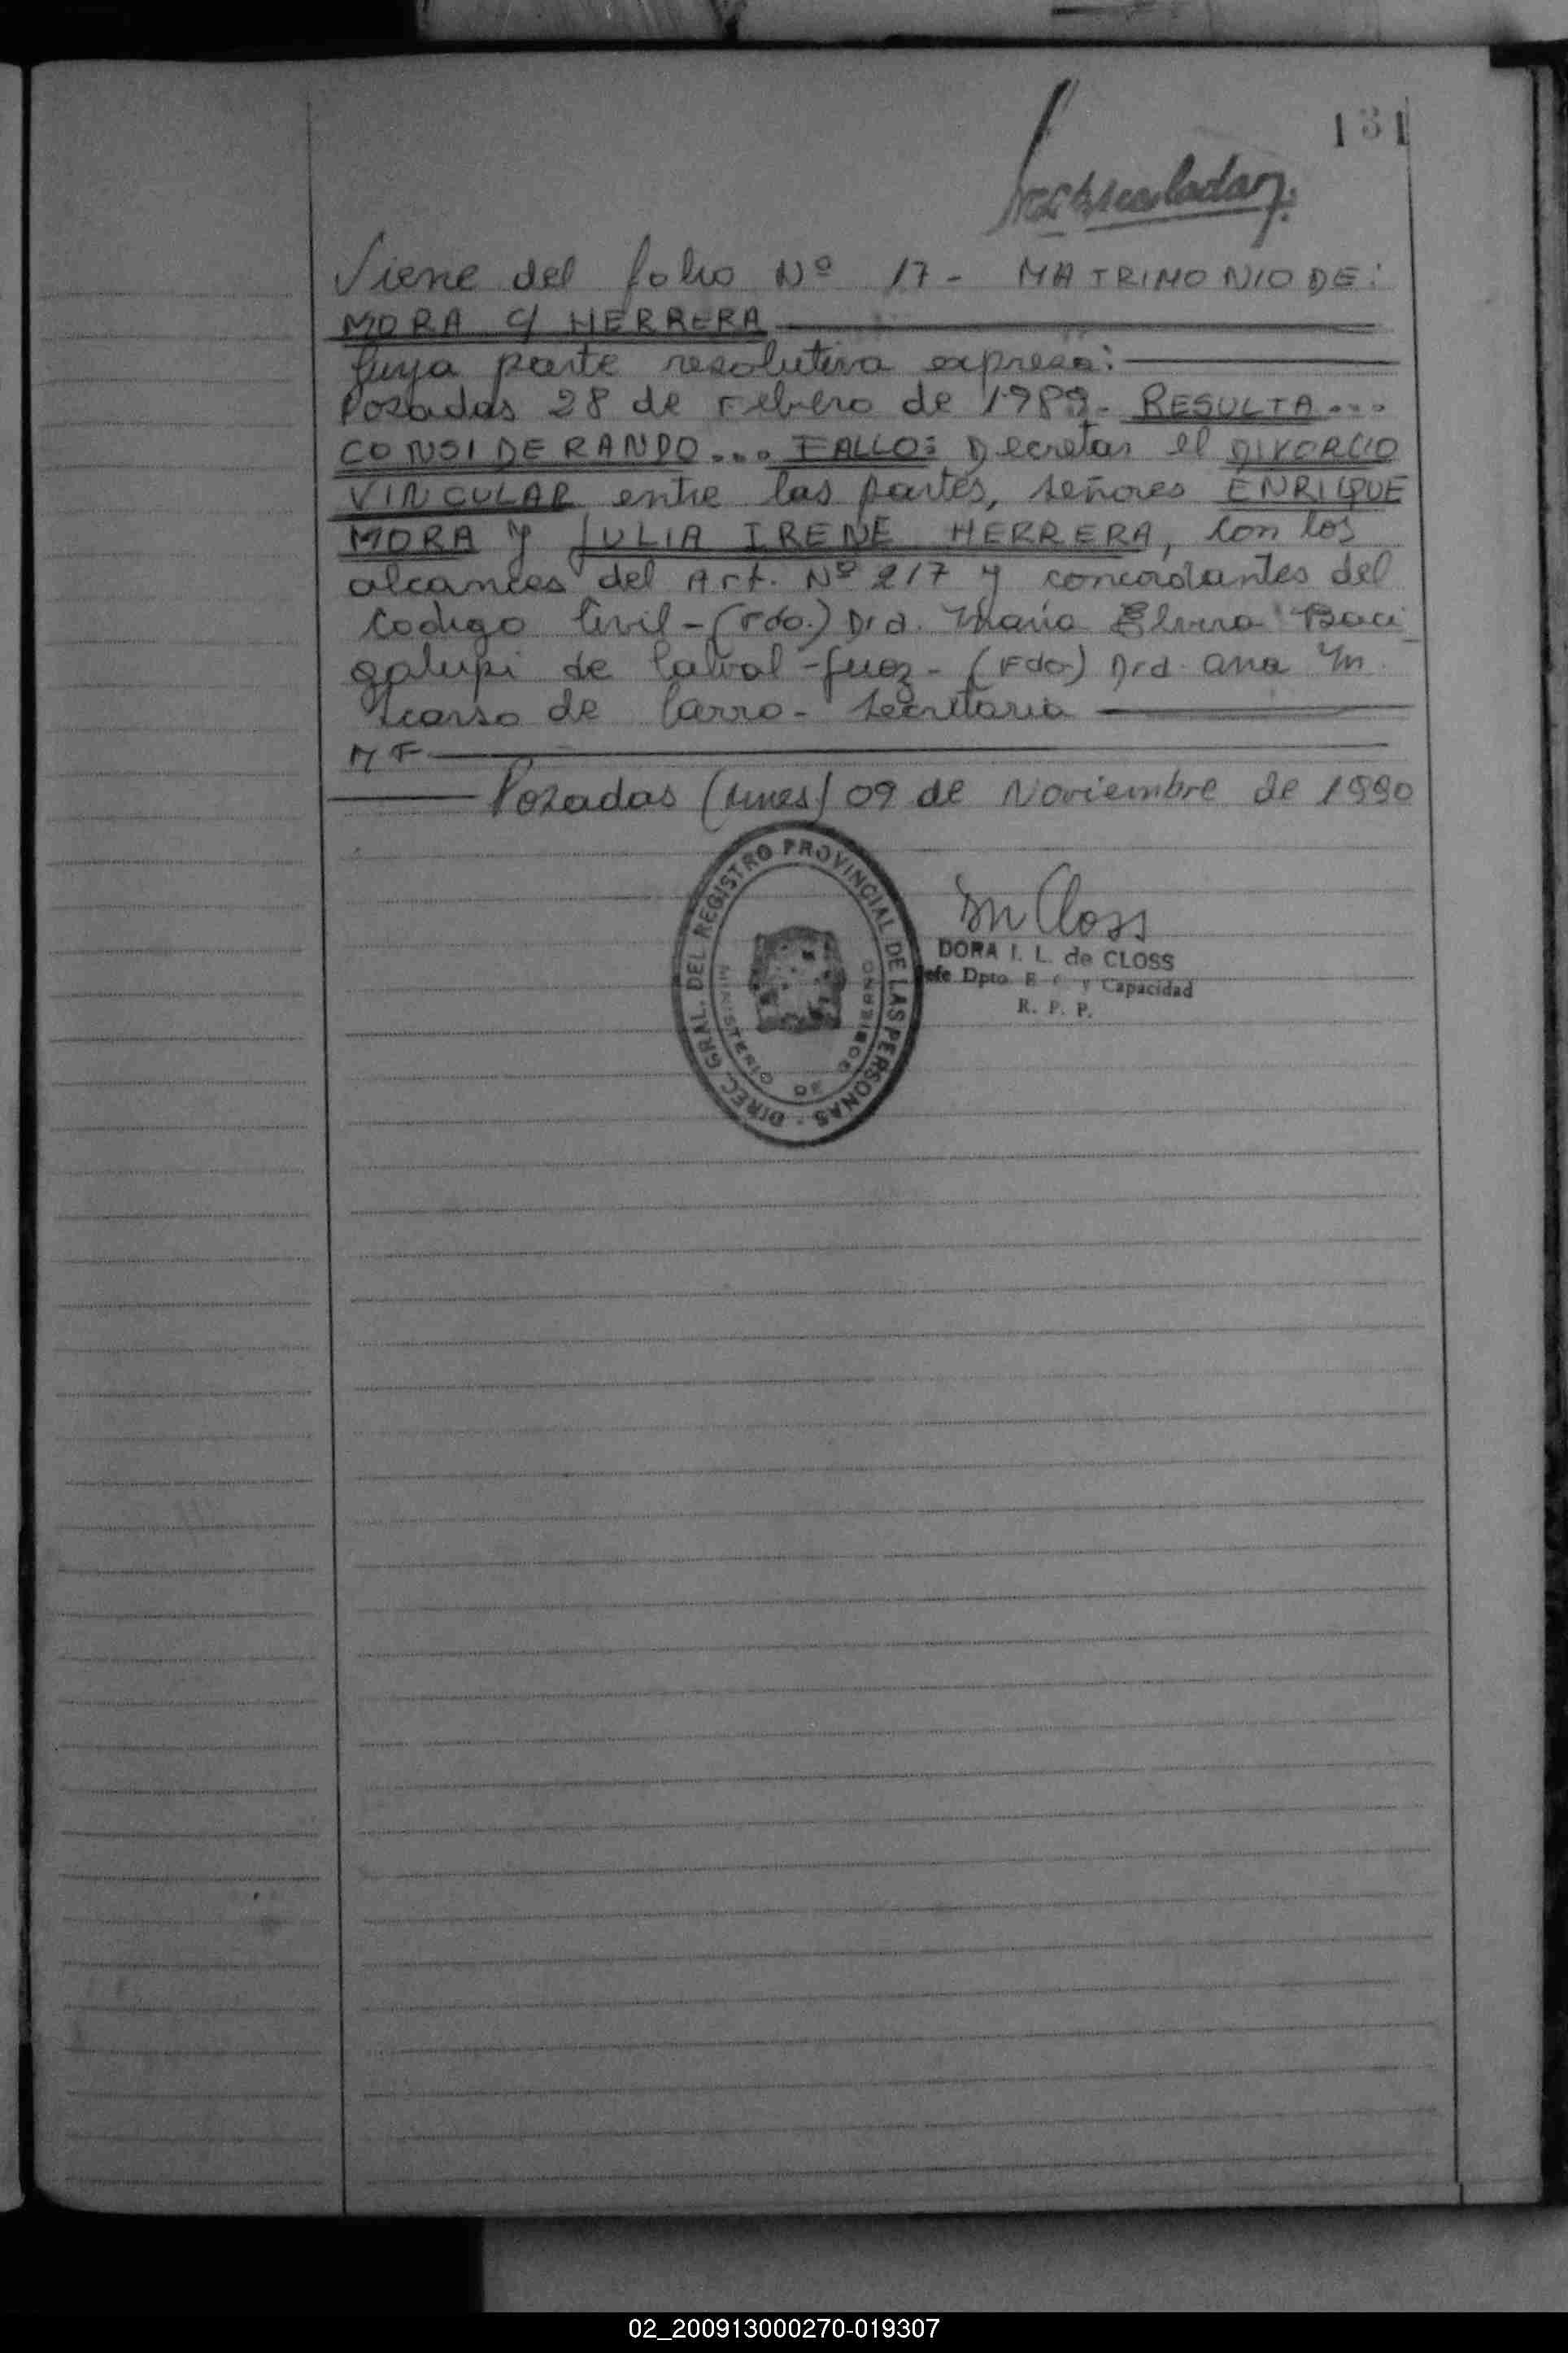 131
Viene del folio Nº 17 - MATRIMONIO DE:
MORA C/ HERRERA
Cuya parte resolutiva expresa:
Posadas 28 de Febrero de 1989. RESULTA...
CONSIDERANDO... FALLO: Decretar el DIVORCIO
VINCULAR entre las partes, señores ENRIQUE
MORA y JULIA IRENE HERRERA, con los
alcances del Art. Nº 217 y concordantes del
Codigo Civil - (Fdo.) Dra. Maria Elvira Baci
galupi de - Juez - (Fdo) Dra. Ana M.
de - Secretaria
MF
Posadas (Mnes) 09 de Noviembre de 1990
DIREC. GRAL. DEL REGISTRO PROVINCIAL DE LAS PERSONAS
MINISTERIO DE GOBIERNO
Closs
DORA I. L. de CLOSS
Jefe Dpto. E. C. y Capacidad
R. P. P.
02_200913000270-019307